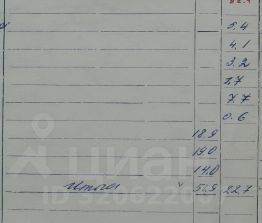 5.4
4.1
3.2
2.7
7.7
0.6
18.9
19.0
14.0
Итого 51.9 22.7
циан